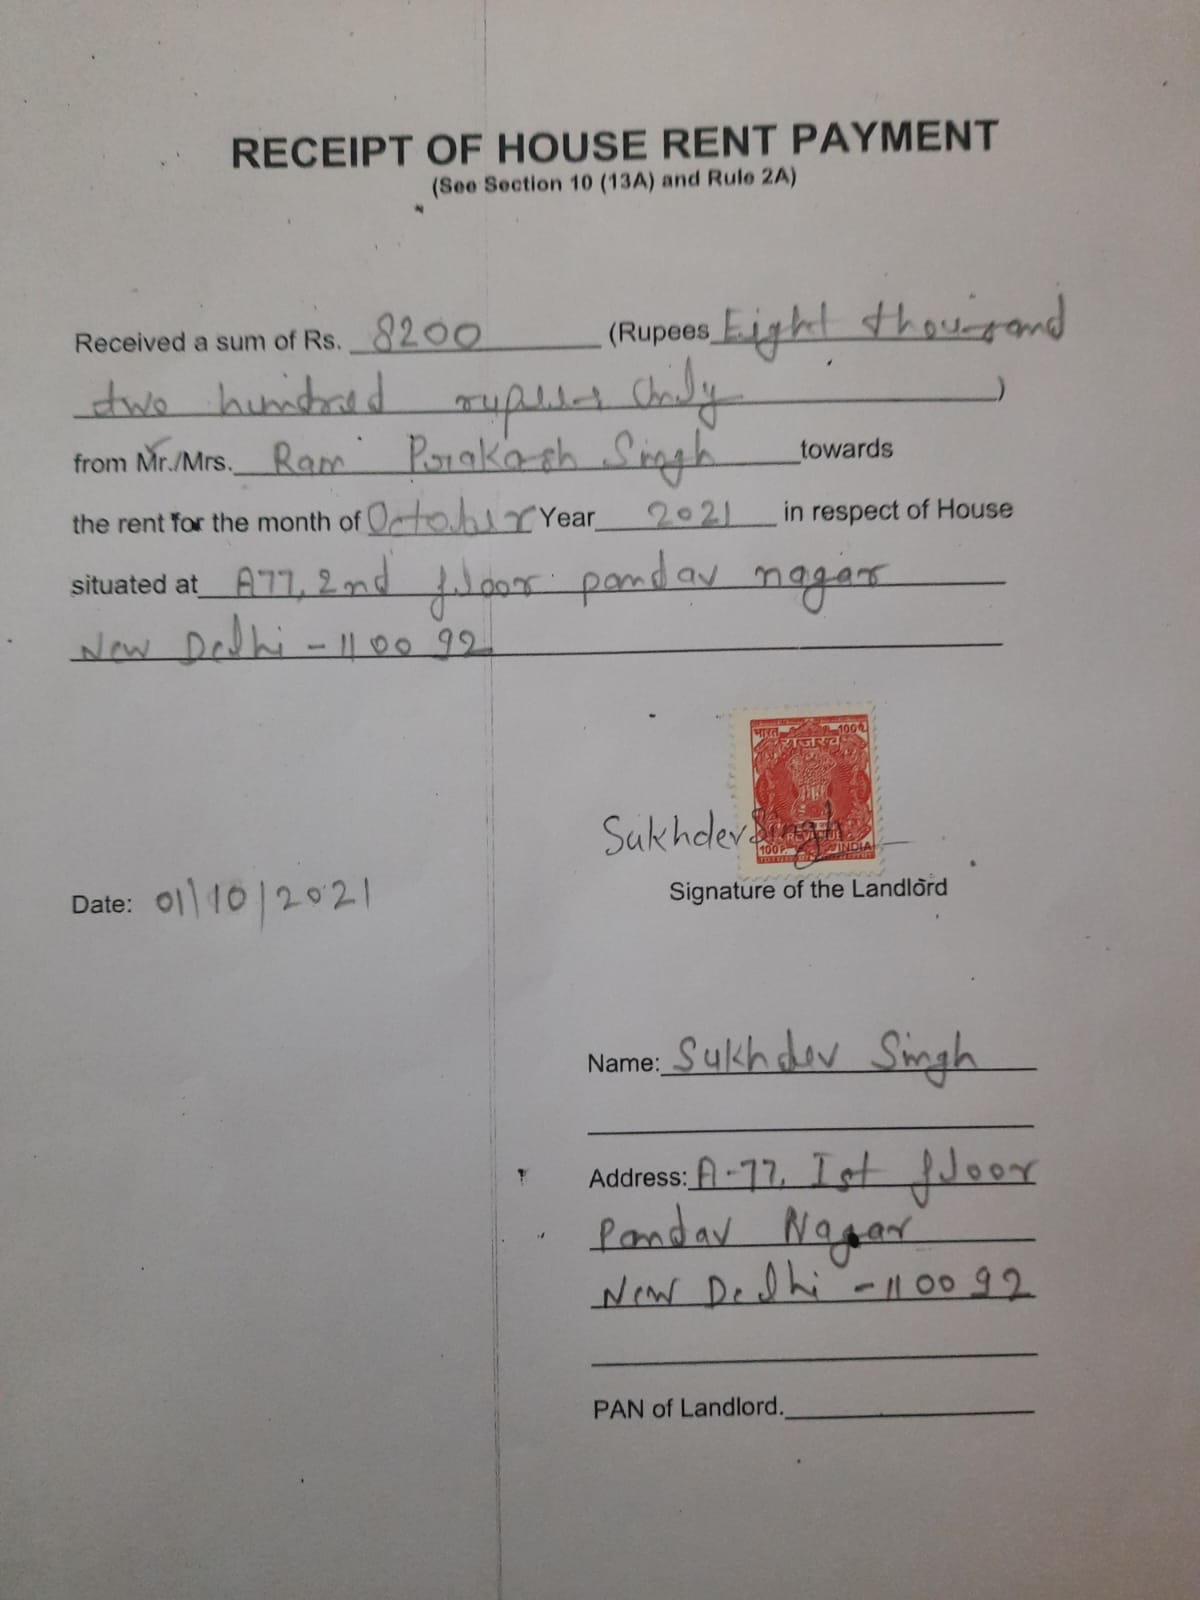 RECEIPT OF HOUSE RENT PAYMENT
(See Section 10 (13A) and Rule 2A)
Received a sum of Rs. 8200 (Rupees Eight thousand
two hundred rupees only )
from Mr./Mrs. Ram Prakash Singh towards
the rent for the month of October Year 2021 in respect of House
situated at A77, 2nd floor pandav nagar
New Delhi - 110092
भारत 100P.
राजस्व
REVENUE
100P. INDIA
Sukhdev Singh
Signature of the Landlord
Date: 01/10/2021
Name: Sukhdev Singh
Address: A-77, Ist floor
Pandav Nagar
New Delhi - 110092
PAN of Landlord.